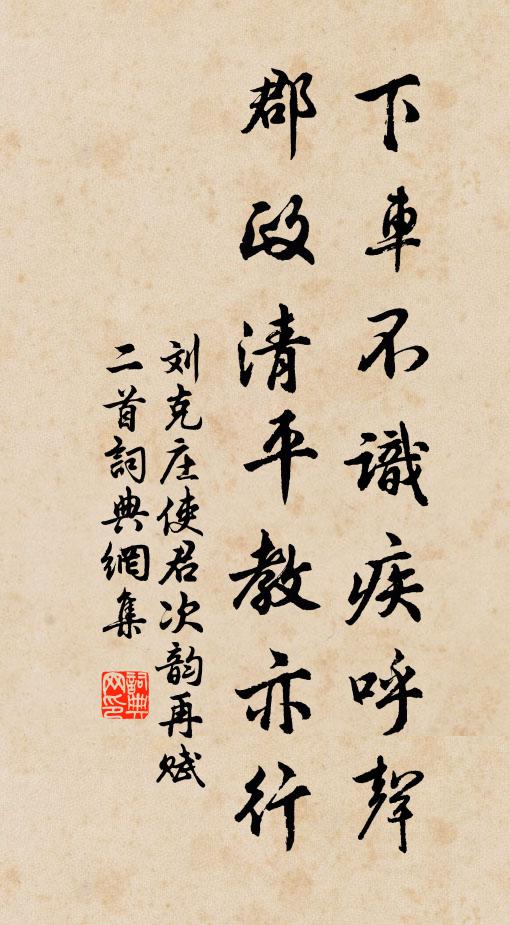 下車不識疾呼聲
郡政清平教亦行
刘克庄使君次韵再赋
二首詞典網集
詞典
网印